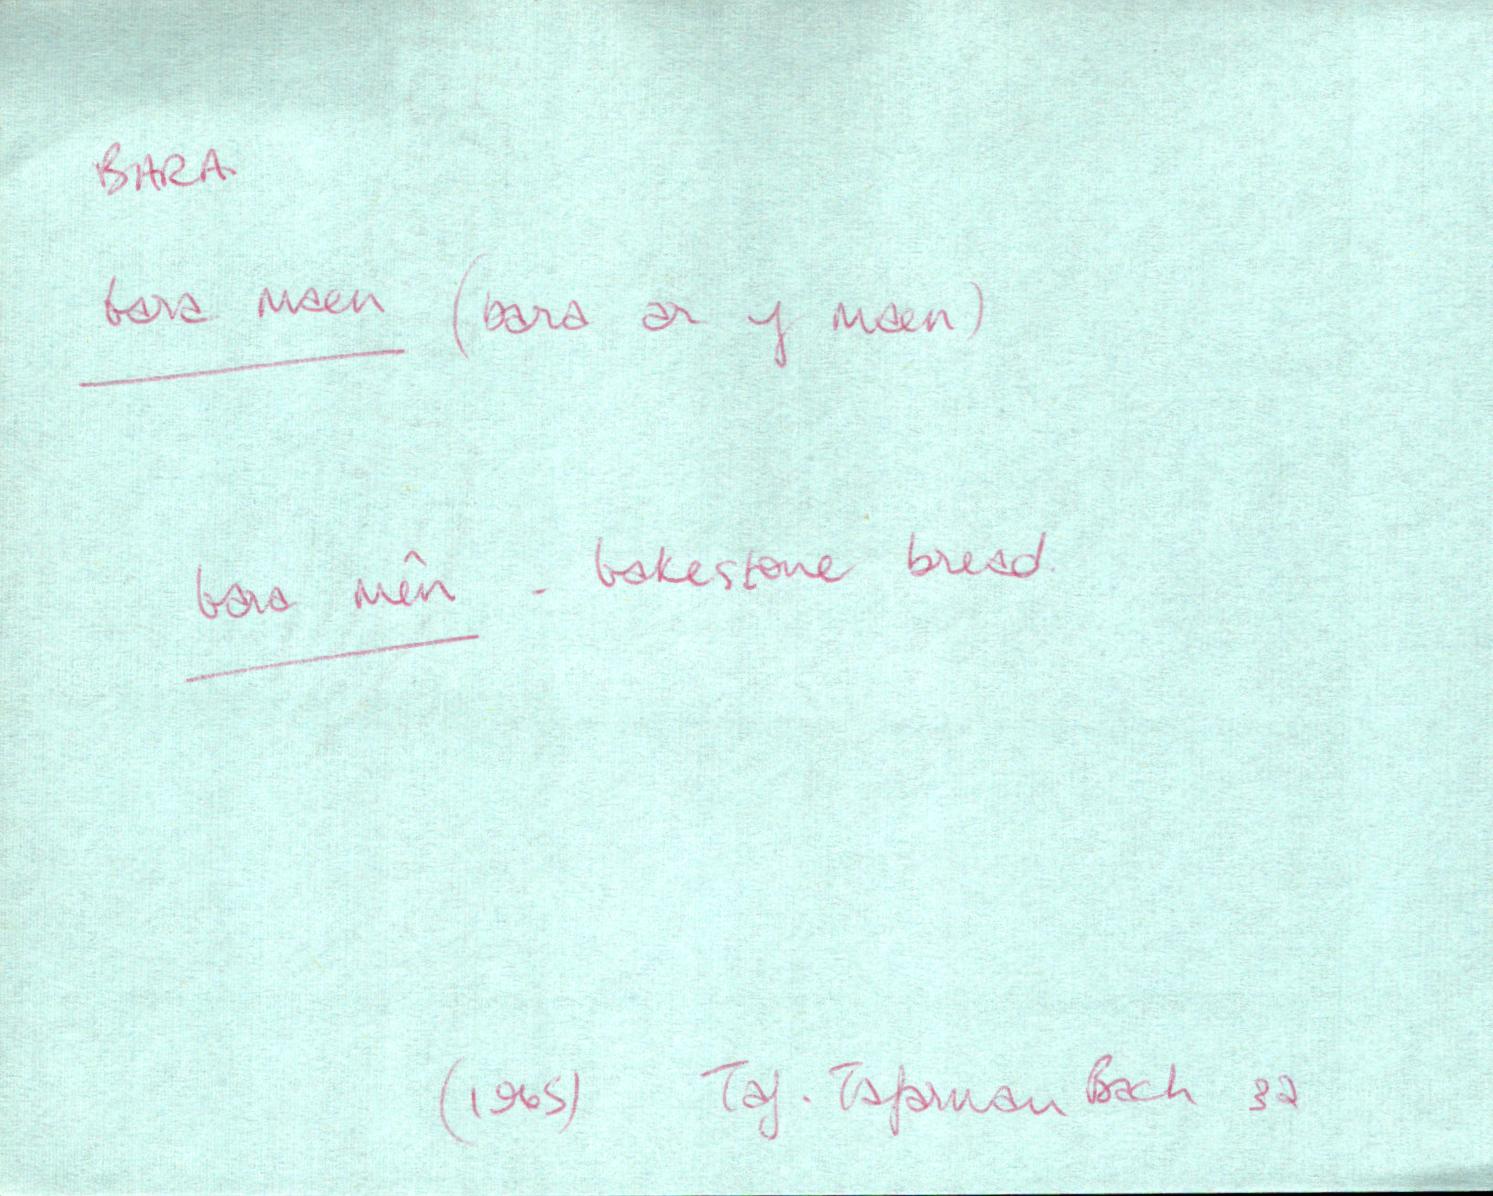 BARA
bara maen (bara ar y maen)
bara mên - bakestone bread.
(1965) Taf. Tafarnau Bach 32